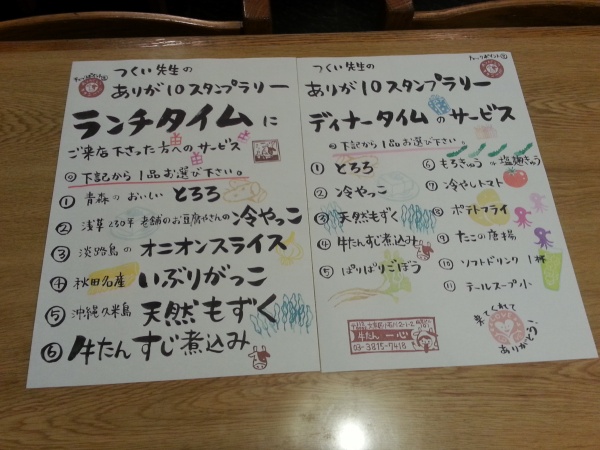 つくい先生の
ありが10スタンプラリー
ランチタイムに
ご来店下さった方へのサービス
◎下記から1品お選び下さい。
① 青森のおいしい とろろ
② 浅草230年 老舗のお豆腐やさんの冷やっこ
③ 淡路島の オニオンスライス
④ 秋田名産 いぶりがっこ
⑤ 沖縄久米島 天然もずく
⑥ 牛たんすじ煮込み
つくい先生の
ありが10スタンプラリー
ディナータイムのサービス
◎下記から1品お選び下さい。
① とろろ
② 冷やっこ
③ 天然もずく
④ 牛たんすじ煮込み
⑤ ぱりぱりごぼう
⑥ もろきゅう or 塩麹きゅう
⑦ 冷やしトマト
⑧ ポテトフライ
⑨ たこの唐揚
⑩ ソフトドリンク 1杯
⑪ テールスープ小
牛たん 一心
03-3815-7418
来てくれて
ありがとう